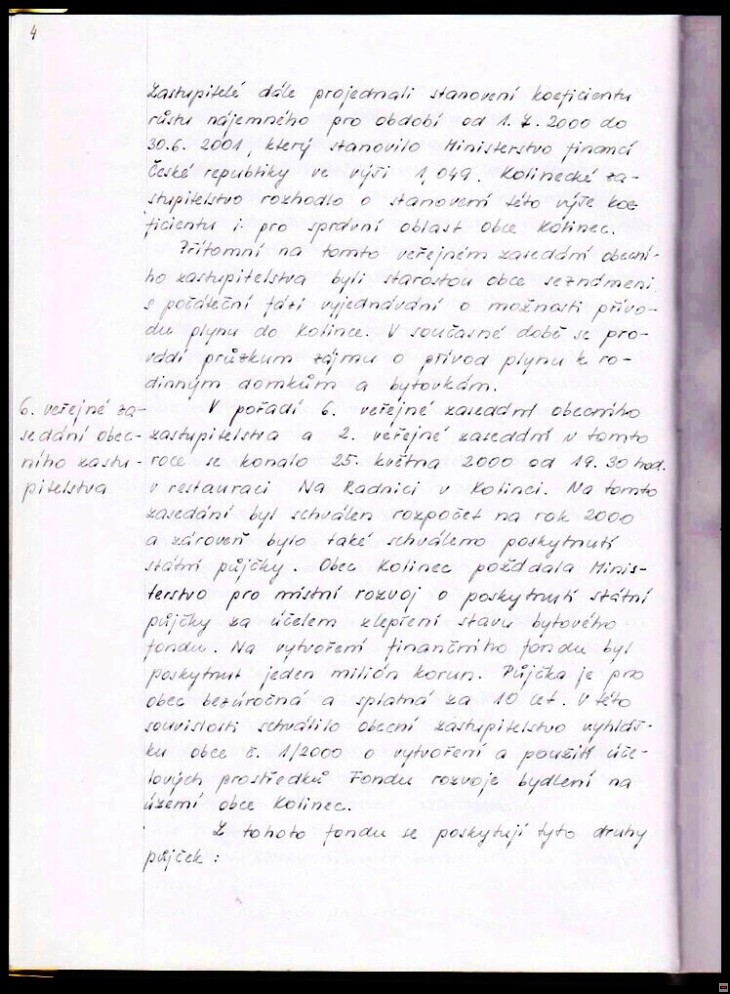 4
Zastupitelé dále projednali stanovení koeficientu
růstu nájemného pro období od 1.7.2000 do
30.6. 2001, který stanovilo Ministerstvo financí
České republiky ve výši 1,049. Kolinecké za-
stupitelstvo rozhodlo o stanovení této výše koe-
ficientu i pro správní oblast obce Kolinec.
Přítomní na tomto veřejném zasedání obecní-
ho zastupitelstva byli starostou obce seznámeni
s počáteční fází vyjednávání o možnosti přívo-
du plynu do Kolince. V současné době se pro-
vádí průzkum zájmu o přívod plynu k ro-
dinným domkům a bytovkám.
6. veřejné za-
sedání obec-
ního zastu-
pitelstva
V pořadí 6. veřejné zasedání obecního
zastupitelstva a 2. veřejné zasedání v tomto
roce se konalo 25. května 2000 od 19.30 hod.
v restauraci Na Radnici v Kolinci. Na tomto
zasedání byl schválen rozpočet na rok 2000
a zároveň bylo také schváleno poskytnutí
státní půjčky. Obec Kolinec požádala Minis-
terstvo pro místní rozvoj o poskytnutí státní
půjčky za účelem zlepření stavu bytového
fondu. Na vytvoření finančního fondu byl
poskytnut jeden milión korun. Půjčka je pro
obec bezúročná a splatná za 10 let. V této
souvislosti schválilo obecní zastupitelstvo vyhláš-
ku obce č. 1/2000 o vytvoření a použití úče-
lových prostředků Fondu rozvoje bydlení na
území obce Kolinec.
Z tohoto fondu se poskytují tyto druhy
půjček :